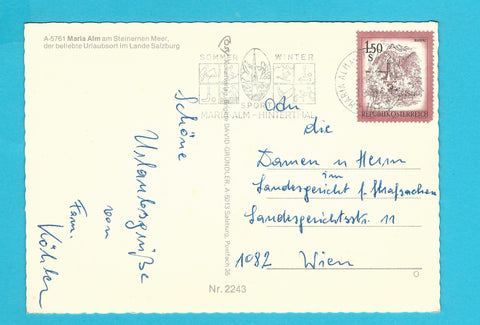 A-5761 Maria Alm am Steinernen Meer,
der beliebte Urlaubsort im Lande Salzburg
Schöne
Urlaubsgrüße
von
Fam.
Köhler
DAVID GRÜNDLER, A 5013 Salzburg, Postfach 36
Nr. 2243
SOMMER WINTER
SPORT
MARIA ALM - HINTERTHAL
MARIA ALM
1.50
S
REPUBLIK ÖSTERREICH
An
die
Damen u Herrn
im
Landesgericht f. Strafsachen
Landesgerichtsstr. 11
1082 Wien